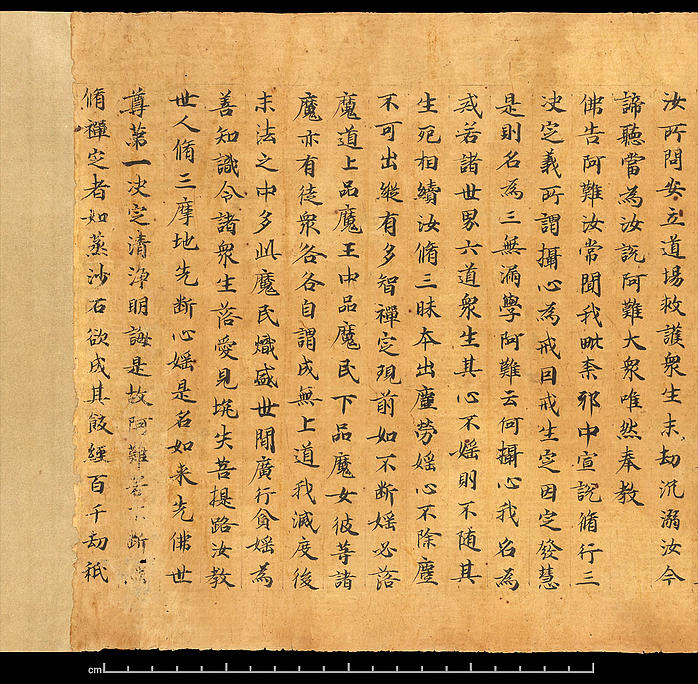 汝所問安立道場救護衆生末劫沉溺汝今
諦聽當為汝說阿難大衆唯然奉教
佛告阿難汝常聞我毗柰耶中宣說脩行三
决定義所謂攝心為戒因戒生定因定發慧
是則名為三無漏學阿難云何攝心我名為
戒若諸世界六道衆生其心不婬則不随其
生死相續汝脩三昧本出塵勞婬心不除塵
不可出縱有多智禪定現前如不断婬必落
魔道上品魔王中品魔民下品魔女彼䓁諸
魔亦有徒衆各各自謂成無上道我滅度後
末法之中多此魔民熾盛世間廣行貪婬為
善知識令諸衆生落愛見坑失菩提路汝教
世人脩三摩地先断心婬是名如来先佛世
尊第一决定清淨明誨是故阿難若不断
脩禪定者如蒸沙石欲成其飯經百千劫秖
cm